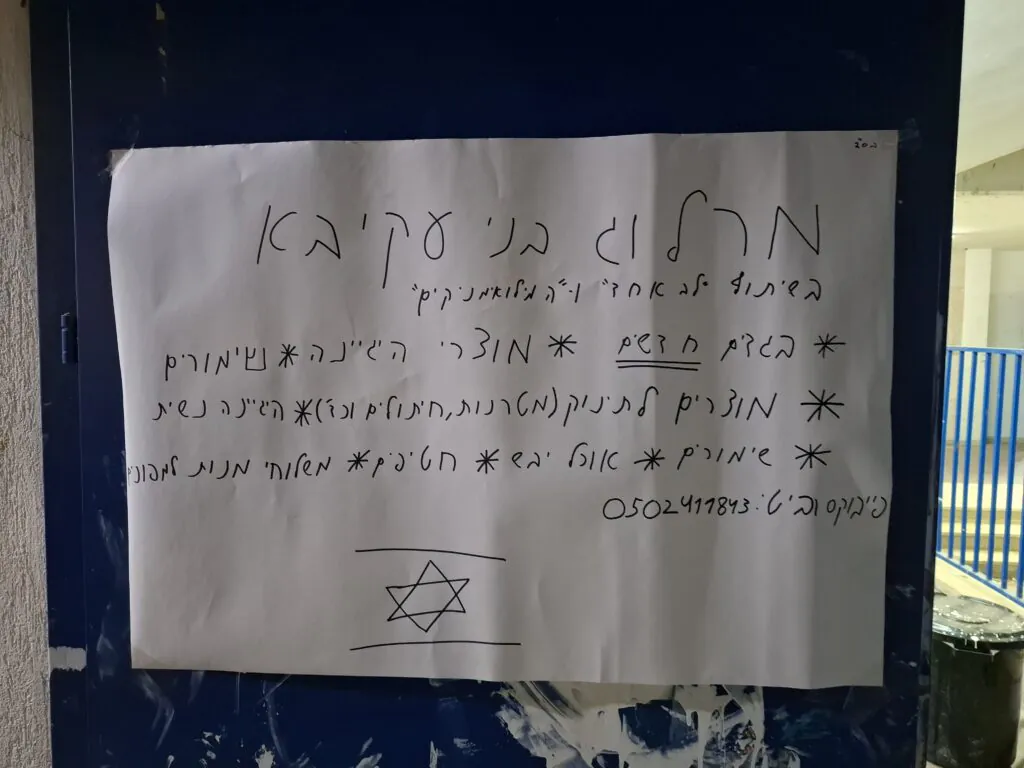 בס"ד
מרלוג בני עקיבא
בשיתוף "לב אחד" ו-"המלואמניקים"
* בגדים חדשים * מוצרי היגיינה * שימורים
* מוצרים לתינוק (מטרנות, חיתולים וכד') * היגיינה נשית
* שימורים * אוכל יבש * חטיפים * משלוחי מנות למפונים
פייבוקס וביט: 0502411843